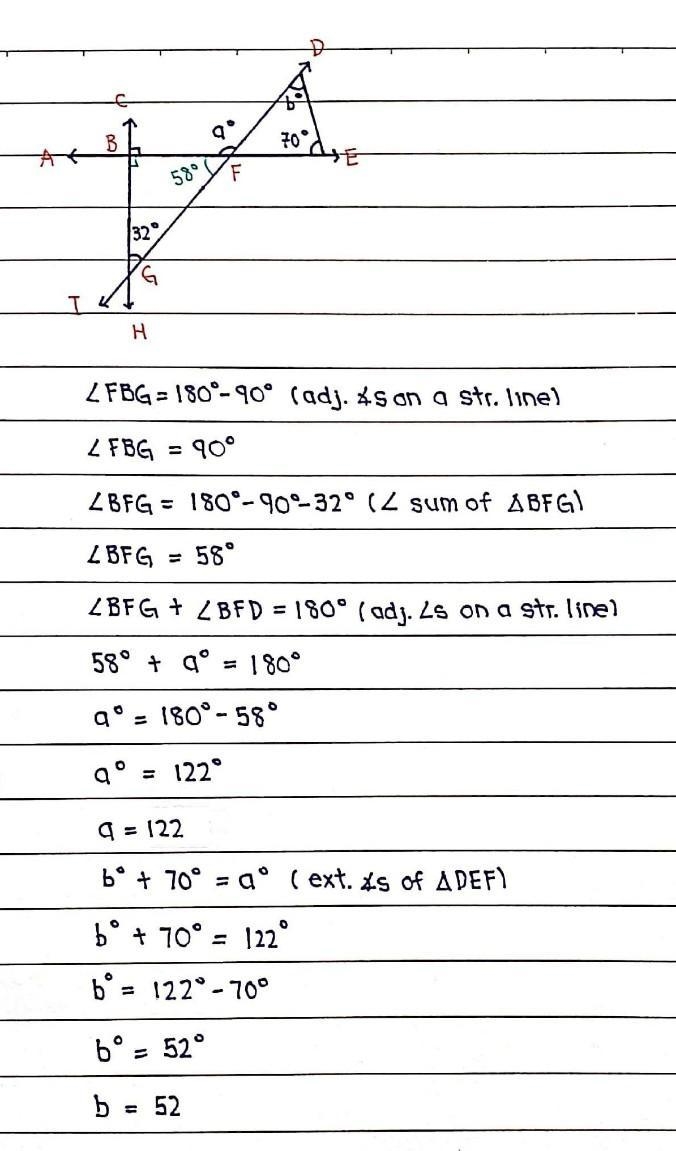 D
C
b°
a°
B
70°
A
E
58°
F
32°
G
I
H
∠FBG = 180°-90° (adj. ∡s on a str. line)
∠FBG = 90°
∠BFG = 180°-90°-32° (∠ sum of △BFG)
∠BFG = 58°
∠BFG + ∠BFD = 180° (adj. ∠s on a str. line)
58° + a° = 180°
a° = 180°-58°
a° = 122°
a = 122
b° + 70° = a° (ext. ∡s of △DEF)
b° + 70° = 122°
b° = 122°-70°
b° = 52°
b = 52